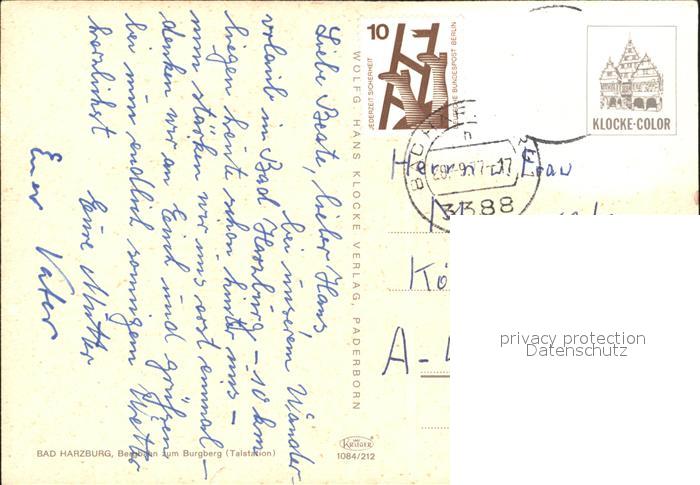 Liebe Beate, lieber Hans,
bei unserem Wander-
urlaub in Bad Harzburg - 10 km
liegen heute schon hinter uns -
nun stärken wir uns erst einmal -
denken wir an Euch und grüßen
bei nun endlich sonnigem Wetter
herzlichst Eure Mutter
Euer Vater
WOLFG. HANS KLOCKE VERLAG, PADERBORN
BAD HARZBURG, Bergbahn zum Burgberg (Talstation)
KRÜGER
1084/212
10
JEDERZEIT SICHERHEIT
DEUTSCHE BUNDESPOST BERLIN
KLOCKE-COLOR
BAD HA
-9.77-17
3388
Herrn u. Frau
Kö
A-
privacy protection
Datenschutz